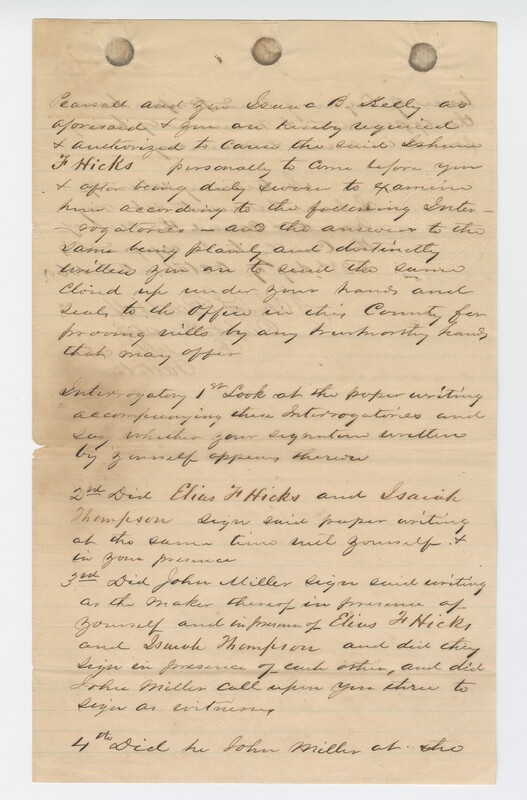 Pearsall and you Isaac B. Kelly as
aforesaid & you are hereby required
& authorized to cause the said Isham
F Hicks personally to come before you
& after being duly sworn to examine
him according to the following Inter-
rogatories - and the answers to the
same being plainly and distinctly
written you are to send the same
Closed up under your hands and
seals to the Office in this County for
proving wills by any trustworthy hands
that may offer
Interrogatory 1st Look at the paper writing
accompanying these Interrogatories and
say whether your signature written
by yourself appears thereon
2nd Did Elias F Hicks and Isaiah
Thompson sign said paper writing
at the same time with yourself &
in your presence
3rd Did John Miller sign said writing
as the maker thereof in presence of
yourself and in presence of Elias F Hicks
and Isaiah Thompson and did they
sign in presence of each other, and did
John Miller call upon you three to
sign as witnesses
4th Did he John Miller at the